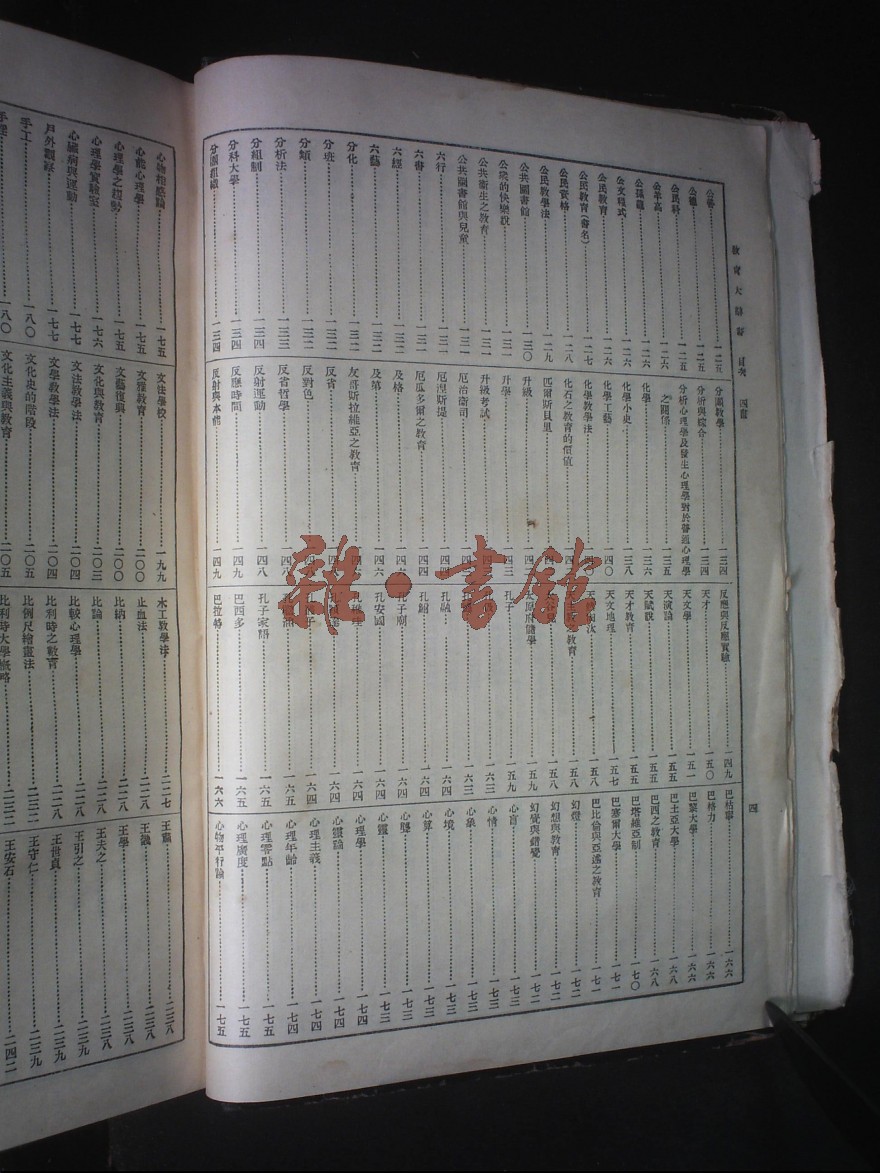 教育大辭書　目次　四畫
公民科
公羊高……一二六
公孫龍……一二六
公文程式……一二六
公民教育……一二六
公民教育(書名)……一二七
公民資格……一二八
公民教學法……一二九
公共圖書館……一三〇
公衆的快樂說……一三一
公共衞生之教育……一三一
公共圖書館與兒童……一三一
六書……一三一
六行……一三一
六經……一三二
六藝……一三二
分化……一三二
分班……一三二
分類……一三三
分析法……一三三
分組制……一三四
分科大學……一三四
分團組織……一三四
分團教學……一三四
分析與綜合……一三四
分析心理學及發生心理學對於普通心理學
之關係……一三五
化學……一三六
化學小史……一三八
化學工藝……一四〇
化學教學法
化石之教育的價值
匹爾斯貝里
升級
升學
升級考試
厄治衞司
厄涅斯提……一四四
厄瓜多爾之教育……一四四
及格……一四六
及第……一四六
友哥斯拉維亞之教育
反省
反對色
反省哲學
反射運動……一四八
反應時間……一四九
反射與本能……一四九
反應與反應實驗……一四九
天才……一五〇
天文學……一五一
天演論……一五五
天賦說……一五五
天才教育……一五七
天文地理……一五八
孔子……一五九
孔融……一六四
孔鮒……一六四
孔子廟……一六四
孔安國……一六四
孔子家語……一六五
巴西多……一六五
巴拉特……一六六
巴枯寧……一六六
巴格力……一六六
巴黎大學……一六六
巴土亞大學……一六八
巴西之教育……一六八
巴塔維亞制……一七〇
巴塞爾大學……一七一
巴比倫與亞述之教育……一七一
幻燈……一七二
幻想與教育……一七二
幻覺與錯覺……一七二
心盲……一七三
心情……一七三
心象……一七三
心境……一七三
心算……一七三
心聾……一七三
心靈……一七三
心理學……一七四
心靈論……一七四
心理主義……一七四
心理年齡……一七四
心理零點……一七五
心理廣度……一七五
心物平行論……一七五
四
心物相感論……一七五
心能心理學……一七五
心理學之趨勢……一七五
心理學實驗室……一七六
心臟病與運動……一七七
戶外類級……一七七
手工……一八〇
文法學校……一九九
文雅教育……二〇〇
文藝復興……二〇〇
文化與教育……二〇三
文法教學法……二〇四
文學教學法……二〇四
文化史的階段……二〇五
文化主義與教育……二〇五
木工教學法……二二七
止血法……二二八
比納……二二八
比論……二二八
比較心理學……二二八
比利時之教育……二二八
比例尺繪畫法……二三二
比利時大學概略……二三二
王肅……二三八
王融……二三八
王學……二三八
王夫之……二三八
王引之……二三九
王世貞……二三九
王守仁……二三九
王安石……二四二
雜·書館